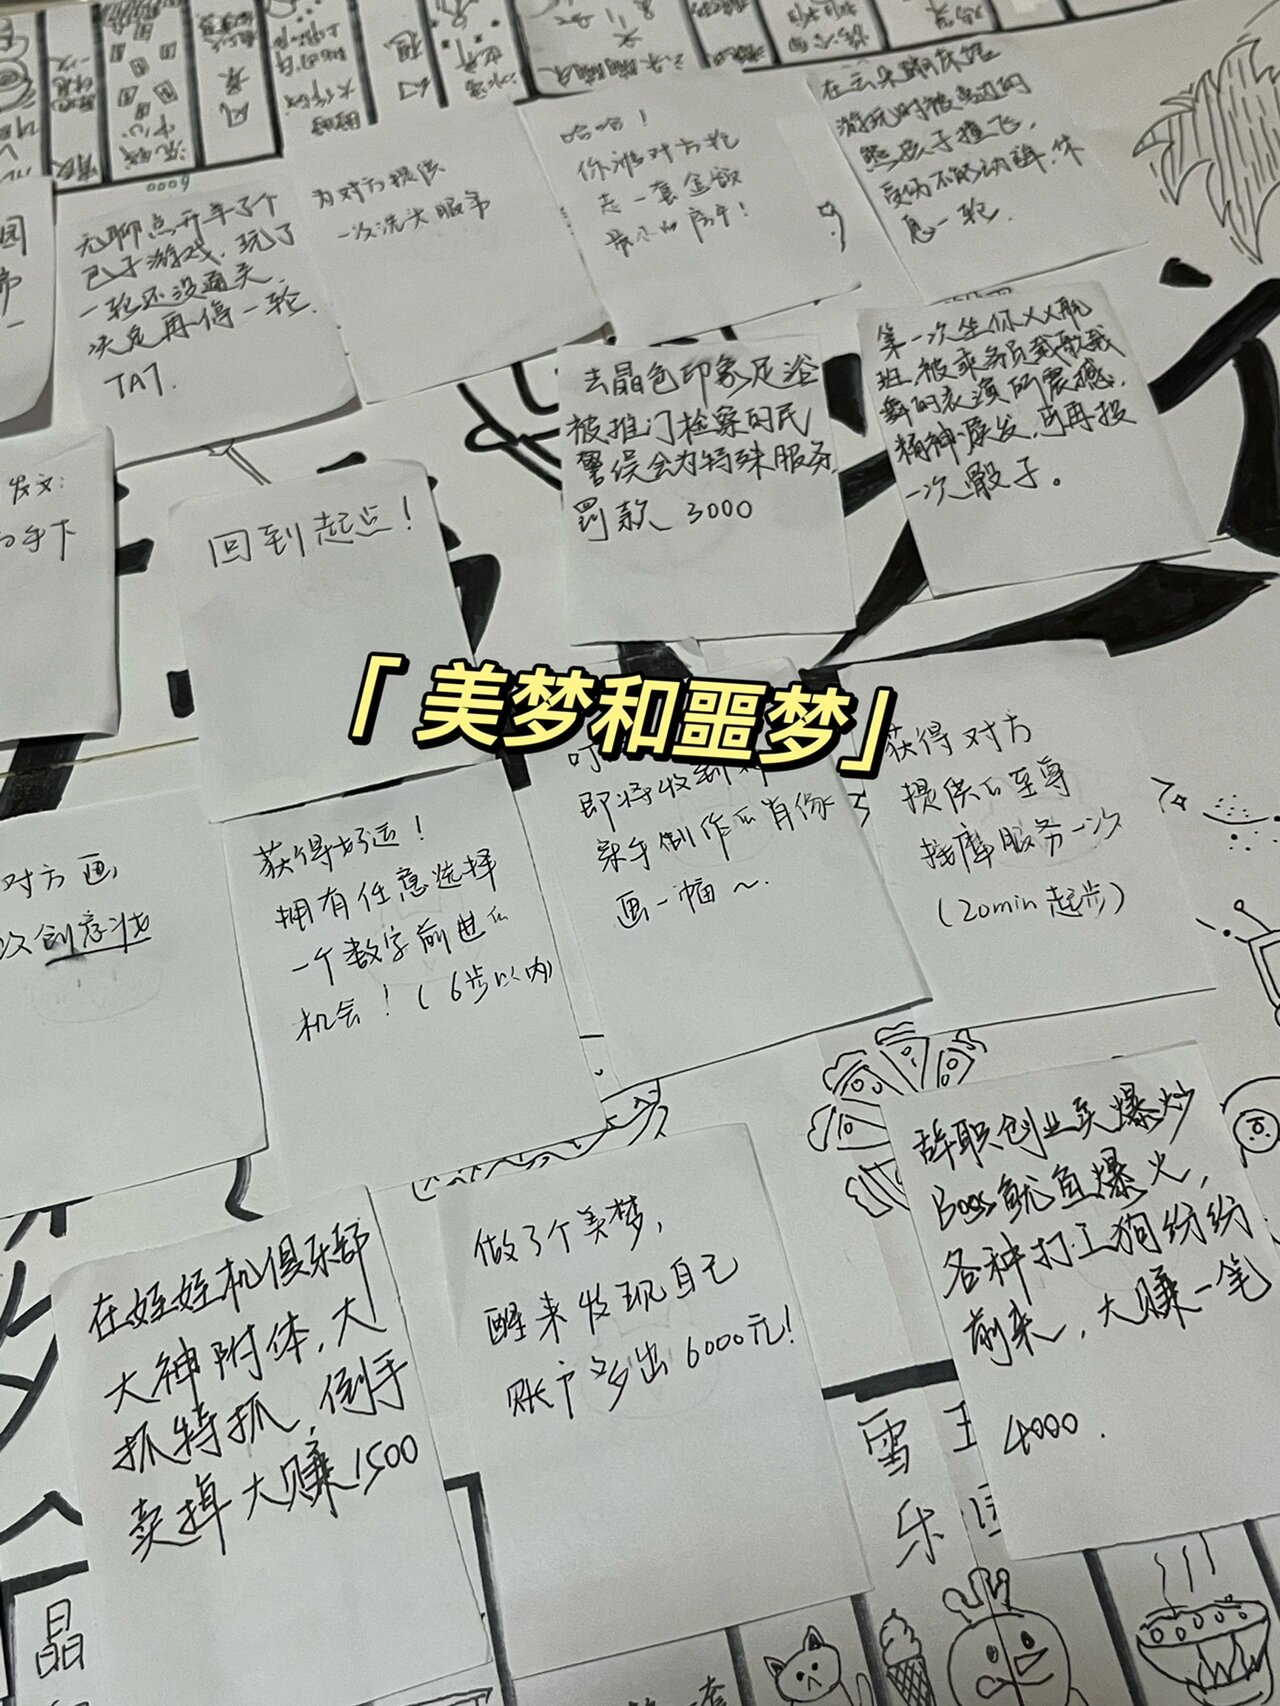 0009
无聊点开羊了个
包子游戏，玩了
一轮还没通关
决定再停一轮
TAT.
为对方提供
一次洗头服务
哈哈！
你将对方抢
走一套金额
最小的房子！
游玩时被旁边的
熊孩子撞飞，
受伤不能动弹，休
息一轮.
去晶色印象足浴
被推门检察的民
警误会为特殊服务
罚款 3000
第一次坐你XX航
班，被乘务员载歌载
舞的表演所震撼，
精神焕发，可再投
一次骰子。
发文：
手下
回到起点！
「美梦和噩梦」
对方画
创意妆
获得好运！
拥有任意选择
一个数字前进的
机会！（6步以内）
叮
即将收到
亲手制作的肖像
画一幅～.
获得对方
提供的至尊
按摩服务一次
（20min起步）
在娃娃机俱乐部
大神附体，大
抓特抓，倒手
卖掉大赚1500
做了个美梦，
醒来发现自己
账户多出6000元！
辞职创业卖爆炒
Boss鱿鱼爆火，
各种打工狗纷纷
前来，大赚一笔
4000.
雪王
乐
晶